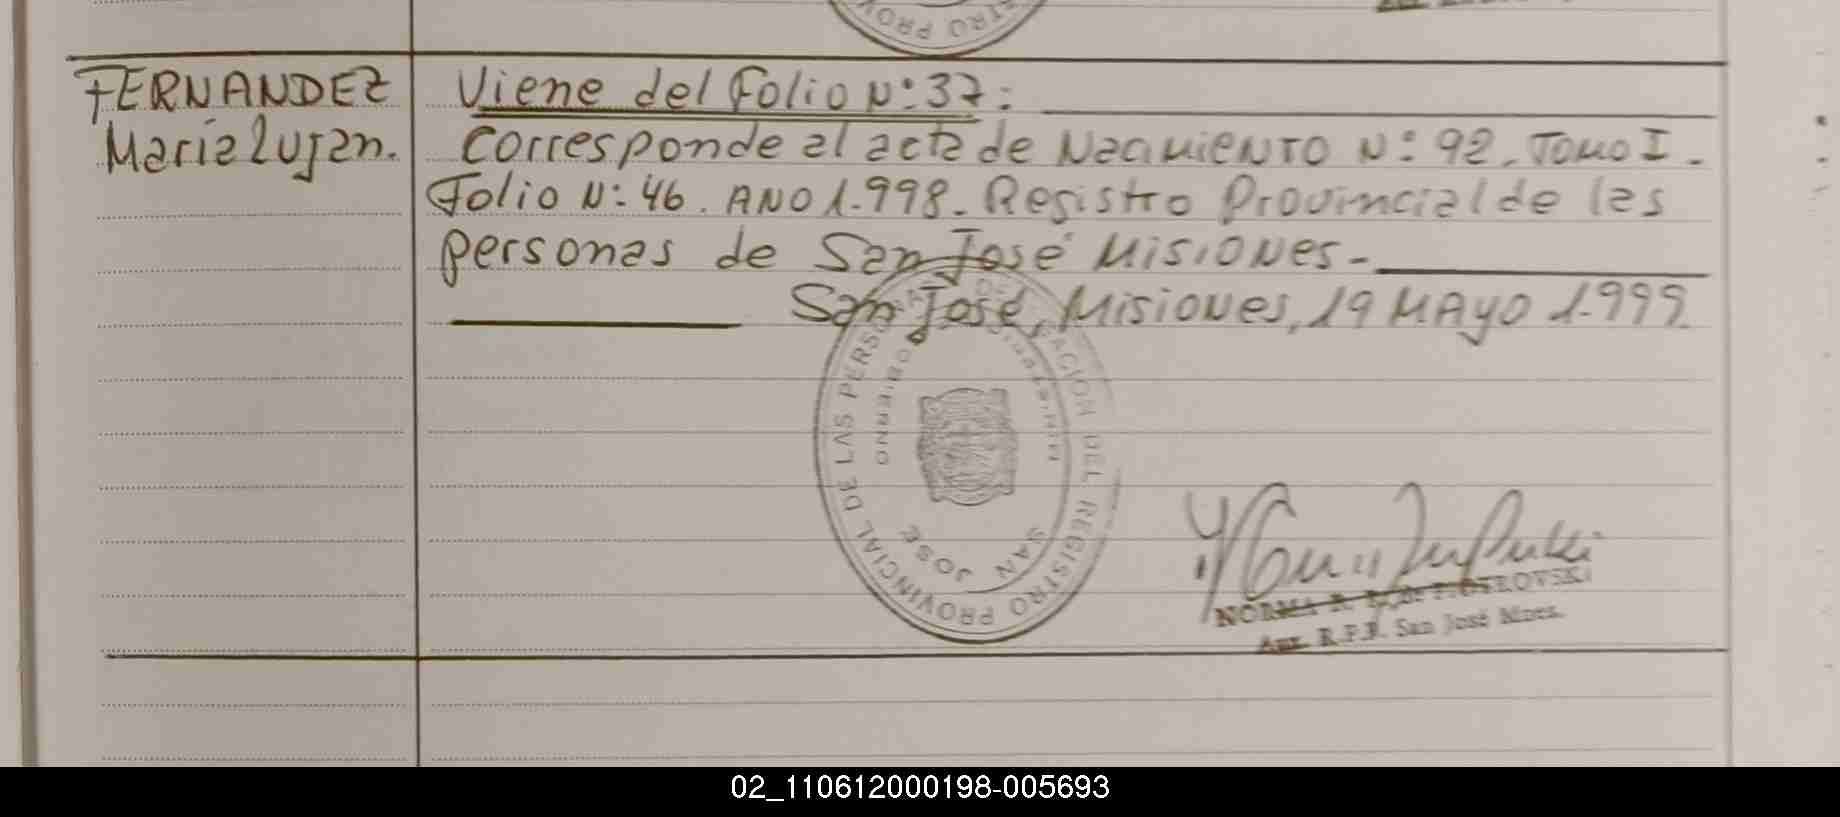 FERNANDEZ
Maria Lujan.
Viene del Folio N°:37:
Corresponde al acta de Nacimiento N°: 92. Tomo I.
Folio N°: 46. AÑO 1.998. Registro Provincial de las
personas de San José Misiones.-
San José, Misiones, 19 MAYO 1.999.
REGISTRO PROVINCIAL DE LAS PERSONAS
DEL REGISTRO
GOBIERNO
SAN JOSE
NORMA R. de PIOTROVSKI
Aux. R.P.P. San José Mnes.
02_110612000198-005693